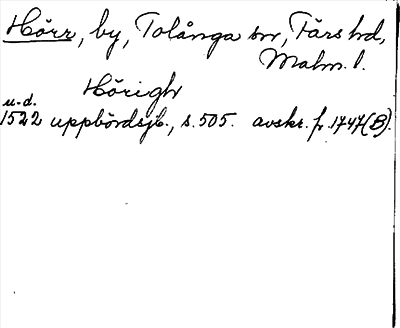 Hörr, by, Tolånga sn, Färs hd,
Malm. l.
Hörigh
u.d.
1522 uppbördsjb., s. 505. avskr. fr. 1747(B).